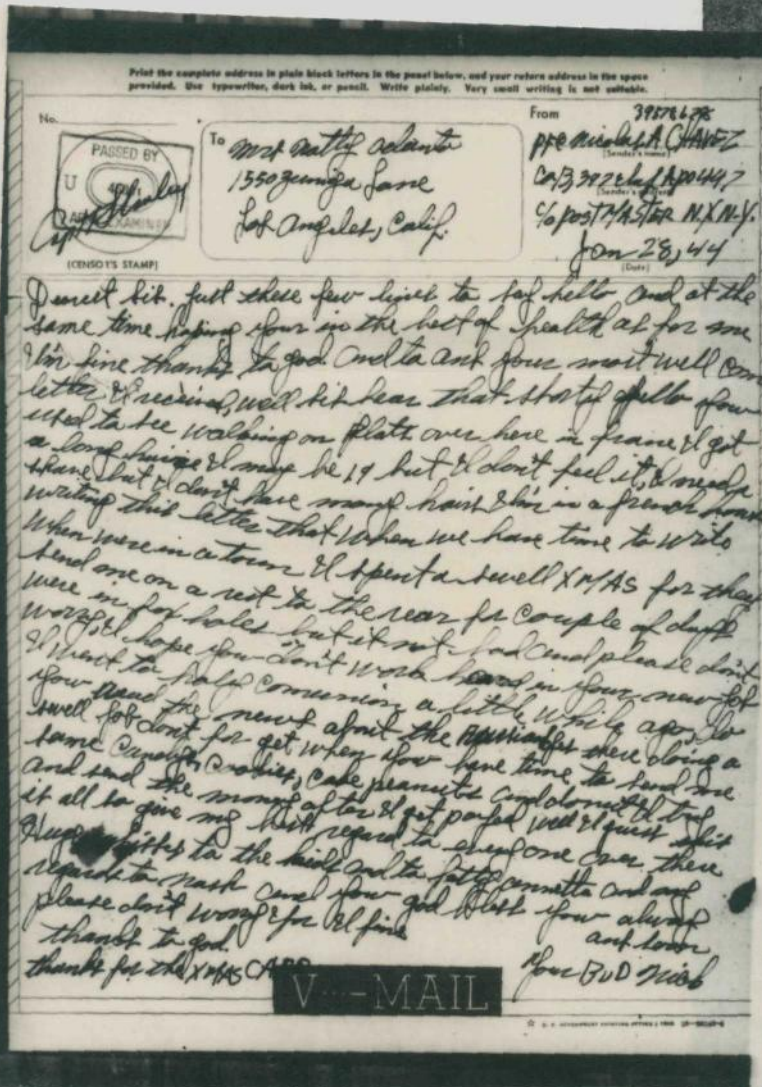 Print the complete address in plain block letters in the panel below, and your return address in the space
provided. Use typewriter, dark ink, or pencil. Write plainly. Very small writing is not suitable.
No.
PASSED BY
U
ARMY EXAMINER
Capt
(CENSOR'S STAMP)
To
Mrs Natty
1550 Zuniga Lane
Los Angeles, Calif.
From
pfc Nicolas A CHAVEZ
(Sender's name)
APO 447
(Sender's address)
c/o postMASTER N.Y. N.Y.
Jan 28, 44
(Date)
Dearest sis. just these few lines to say hello and at the
same time hoping your in the best of health as for me
I'm fine thanks to god and to and your most well come
letter I received, well sis hear that shorty fello you
used to see walking on Platt over here in france I got
a long I may be 19 but I don't feel it, I need a
shave but I don't have many hairs I'm in a french house
writing this letter that when we have time to write
when were in a town I spent a swell XMAS for they
send me on a rest to the rear for couple of days
were in fox holes but it not bad and please don't
worry, I hope you don't work hard in your new job
I went to holy comunion a little while ago, do
you read the news about the Russians there doing a
swell job dont for get when you have time to send me
some Candys, Cookies, cake peanuts and donut I try
and send the money after I get payed well I guess
it all so give my best regard to everyone over there
Hugs kisses to the kids and to fatty annetta and any
regards to nash and you god bless you always
please don't worry for I'll fine
thanks to god.
thanks for the XMAS CARD
Your BuD Nick
V···—MAIL